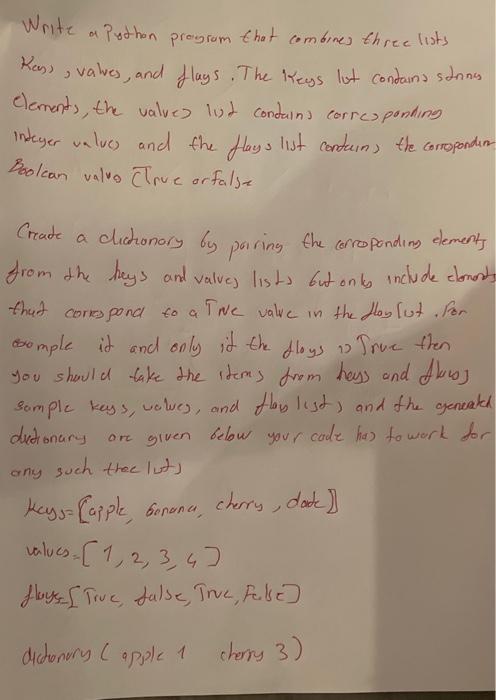 Write a Python program that combines three lists
Keys, values, and flags. The Keys list contains string
elements, the values list contains corresponding
Integer values and the flags list contains the correspondin
Boolean value (True or False
Create a dictionary by pairing the corresponding elements
from the keys and values lists but only include elements
that correspond to a True value in the flag list. For
example if and only if the flags is True then
you should take the items from keys and flags
sample keys, values, and flag lists and the generated
dictionary are given below your code has to work for
any such three lists
keys=[apple, banana, cherry, date]
values=[1, 2, 3, 4]
flags=[True, false, True, False]
dictionary ( apple 1 cherry 3)